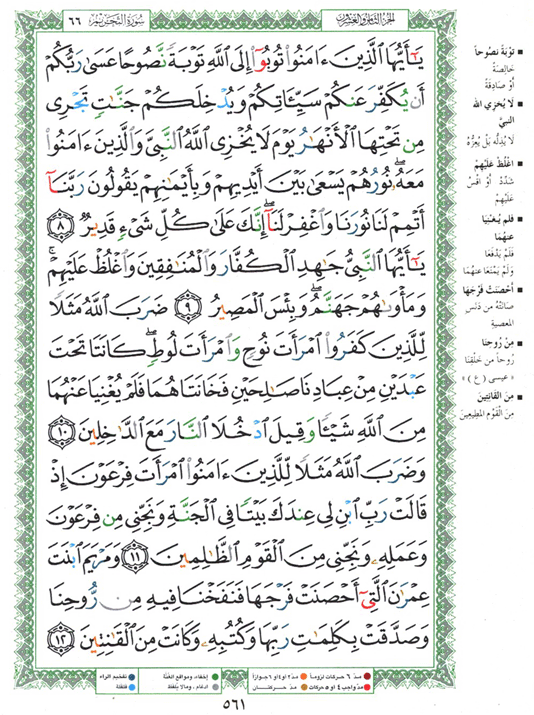 الجزء الثامن والعشرون
سُورَةُ التَّحْرِيمِ
٦٦
يَـٰٓأَيُّهَا ٱلَّذِينَ ءَامَنُوا۟ تُوبُوٓا۟ إِلَى ٱللَّهِ تَوْبَةً نَّصُوحًا عَسَىٰ رَبُّكُمْ
أَن يُكَفِّرَ عَنكُمْ سَيِّـَٔاتِكُمْ وَيُدْخِلَكُمْ جَنَّـٰتٍ تَجْرِى
مِن تَحْتِهَا ٱلْأَنْهَـٰرُ يَوْمَ لَا يُخْزِى ٱللَّهُ ٱلنَّبِىَّ وَٱلَّذِينَ ءَامَنُوا۟
مَعَهُۥ نُورُهُمْ يَسْعَىٰ بَيْنَ أَيْدِيهِمْ وَبِأَيْمَـٰنِهِمْ يَقُولُونَ رَبَّنَآ
أَتْمِمْ لَنَا نُورَنَا وَٱغْفِرْ لَنَآ إِنَّكَ عَلَىٰ كُلِّ شَىْءٍ قَدِيرٌ ٨
يَـٰٓأَيُّهَا ٱلنَّبِىُّ جَـٰهِدِ ٱلْكُفَّارَ وَٱلْمُنَـٰفِقِينَ وَٱغْلُظْ عَلَيْهِمْ
وَمَأْوَىٰهُمْ جَهَنَّمُ وَبِئْسَ ٱلْمَصِيرُ ٩ ضَرَبَ ٱللَّهُ مَثَلًا
لِّلَّذِينَ كَفَرُوا۟ ٱمْرَأَتَ نُوحٍ وَٱمْرَأَتَ لُوطٍ كَانَتَا تَحْتَ
عَبْدَيْنِ مِنْ عِبَادِنَا صَـٰلِحَيْنِ فَخَانَتَاهُمَا فَلَمْ يُغْنِيَا عَنْهُمَا
مِنَ ٱللَّهِ شَيْـًٔا وَقِيلَ ٱدْخُلَا ٱلنَّارَ مَعَ ٱلدَّٰخِلِينَ ١٠
وَضَرَبَ ٱللَّهُ مَثَلًا لِّلَّذِينَ ءَامَنُوا۟ ٱمْرَأَتَ فِرْعَوْنَ إِذْ
قَالَتْ رَبِّ ٱبْنِ لِى عِندَكَ بَيْتًا فِى ٱلْجَنَّةِ وَنَجِّنِى مِن فِرْعَوْنَ
وَعَمَلِهِۦ وَنَجِّنِى مِنَ ٱلْقَوْمِ ٱلظَّـٰلِمِينَ ١١ وَمَرْيَمَ ٱبْنَتَ
عِمْرَٰنَ ٱلَّتِىٓ أَحْصَنَتْ فَرْجَهَا فَنَفَخْنَا فِيهِ مِن رُّوحِنَا
وَصَدَّقَتْ بِكَلِمَـٰتِ رَبِّهَا وَكُتُبِهِۦ وَكَانَتْ مِنَ ٱلْقَـٰنِتِينَ ١٢
تَوْبَةً نَصُوحاً
خَالِصَةً
أَوْ صَادِقَةً
لَا يُخْزِي الله
النبيَّ
لَا يُذِلُّهُ بَلْ يُعِزُّهُ
اغْلُظْ عَلَيْهِمْ
شَدِّدْ أَوْ اقْسُ
عَلَيْهِمْ
فَلَمْ يُغْنِيَا
عَنْهُمَا
فَلَمْ يَدْفَعَا
وَلَمْ يَمْنَعَا عَنْهُمَا
أَحْصَنَتْ فَرْجَهَا
صَانَتْهُ مِن دَنَسِ
المعصِيةِ
مِنْ رُوحِنَا
رُوحاً مِن خَلْقِنَا
«عيسى (ع)»
مِنَ القَانِتِينَ
مِنَ الْقَوْمِ المطِيعِينَ
مدّ ٦ حركات لزوماً
مدّ ٢ أو ٤ أو ٦ جوازاً
إخفاء، ومواقع الغُنَّة
تفخيم الراء
مدّ واجب ٤ أو ٥ حركات
مدّ حركتان
ادغام، ومالا يلفظ
قلقلة
٥٦١